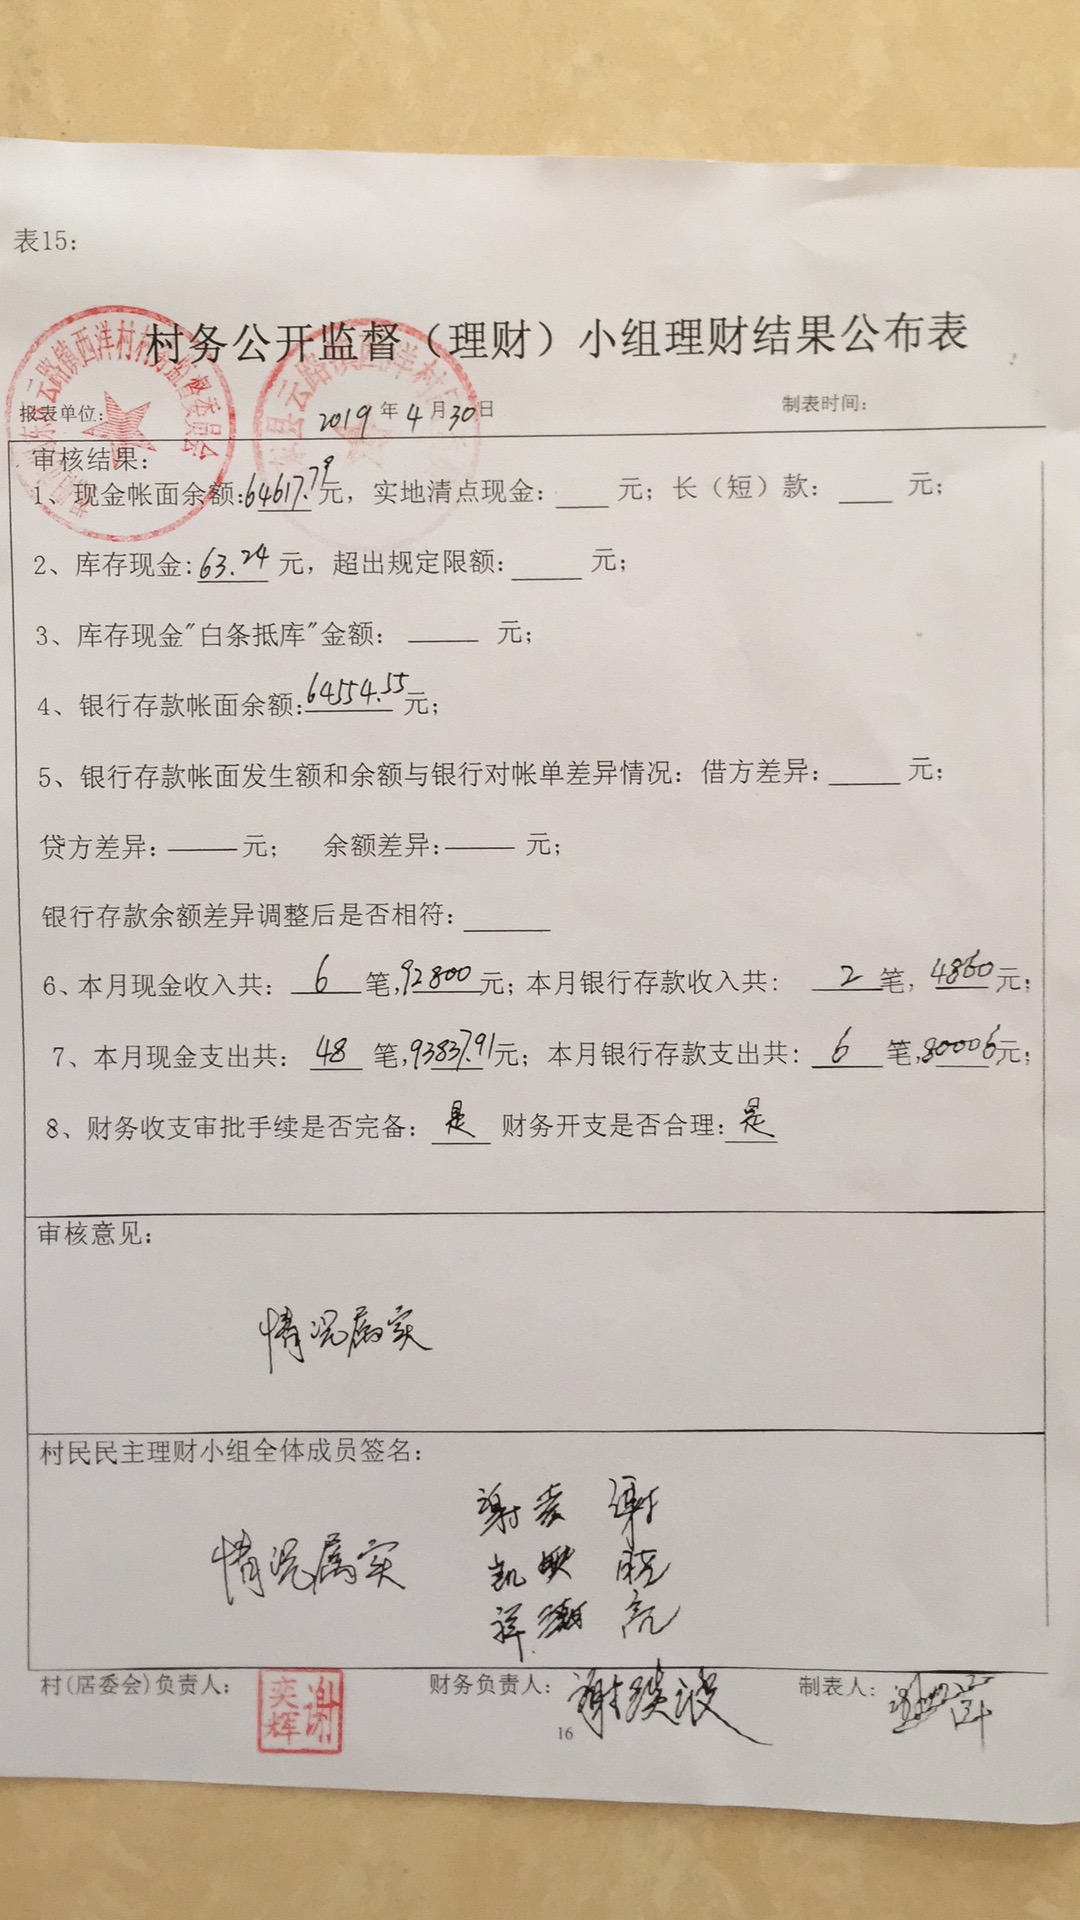 表15:
村务公开监督（理财）小组理财结果公布表
云路镇西洋村村务监督委员会
县云路镇西洋村
报表单位: 2019年4月30日 制表时间:
审核结果:
1、现金帐面余额:64617.79元，实地清点现金: 元；长（短）款: 元；
2、库存现金:63.24元，超出规定限额: 元；
3、库存现金"白条抵库"金额: 元；
4、银行存款帐面余额:64554.55元；
5、银行存款帐面发生额和余额与银行对帐单差异情况：借方差异: 元；
贷方差异: 元； 余额差异: 元；
银行存款余额差异调整后是否相符:
6、本月现金收入共: 6笔,92800元；本月银行存款收入共: 2笔, 4860元；
7、本月现金支出共: 48笔,93837.91元；本月银行存款支出共: 6笔,80006元；
8、财务收支审批手续是否完备: 是 财务开支是否合理: 是
审核意见:
情况属实
村民民主理财小组全体成员签名:
情况属实
谢 谢
凯 晓
祥 亮
村(居委会)负责人: 谢奕辉 财务负责人: 谢 波 制表人:
16